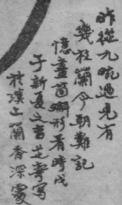 昨從九畹過見有
幾枝蘭今朝難記
憶畫箇鄉形有時戊
子新夏之吉芝寄寫
於漢上蘭香深處